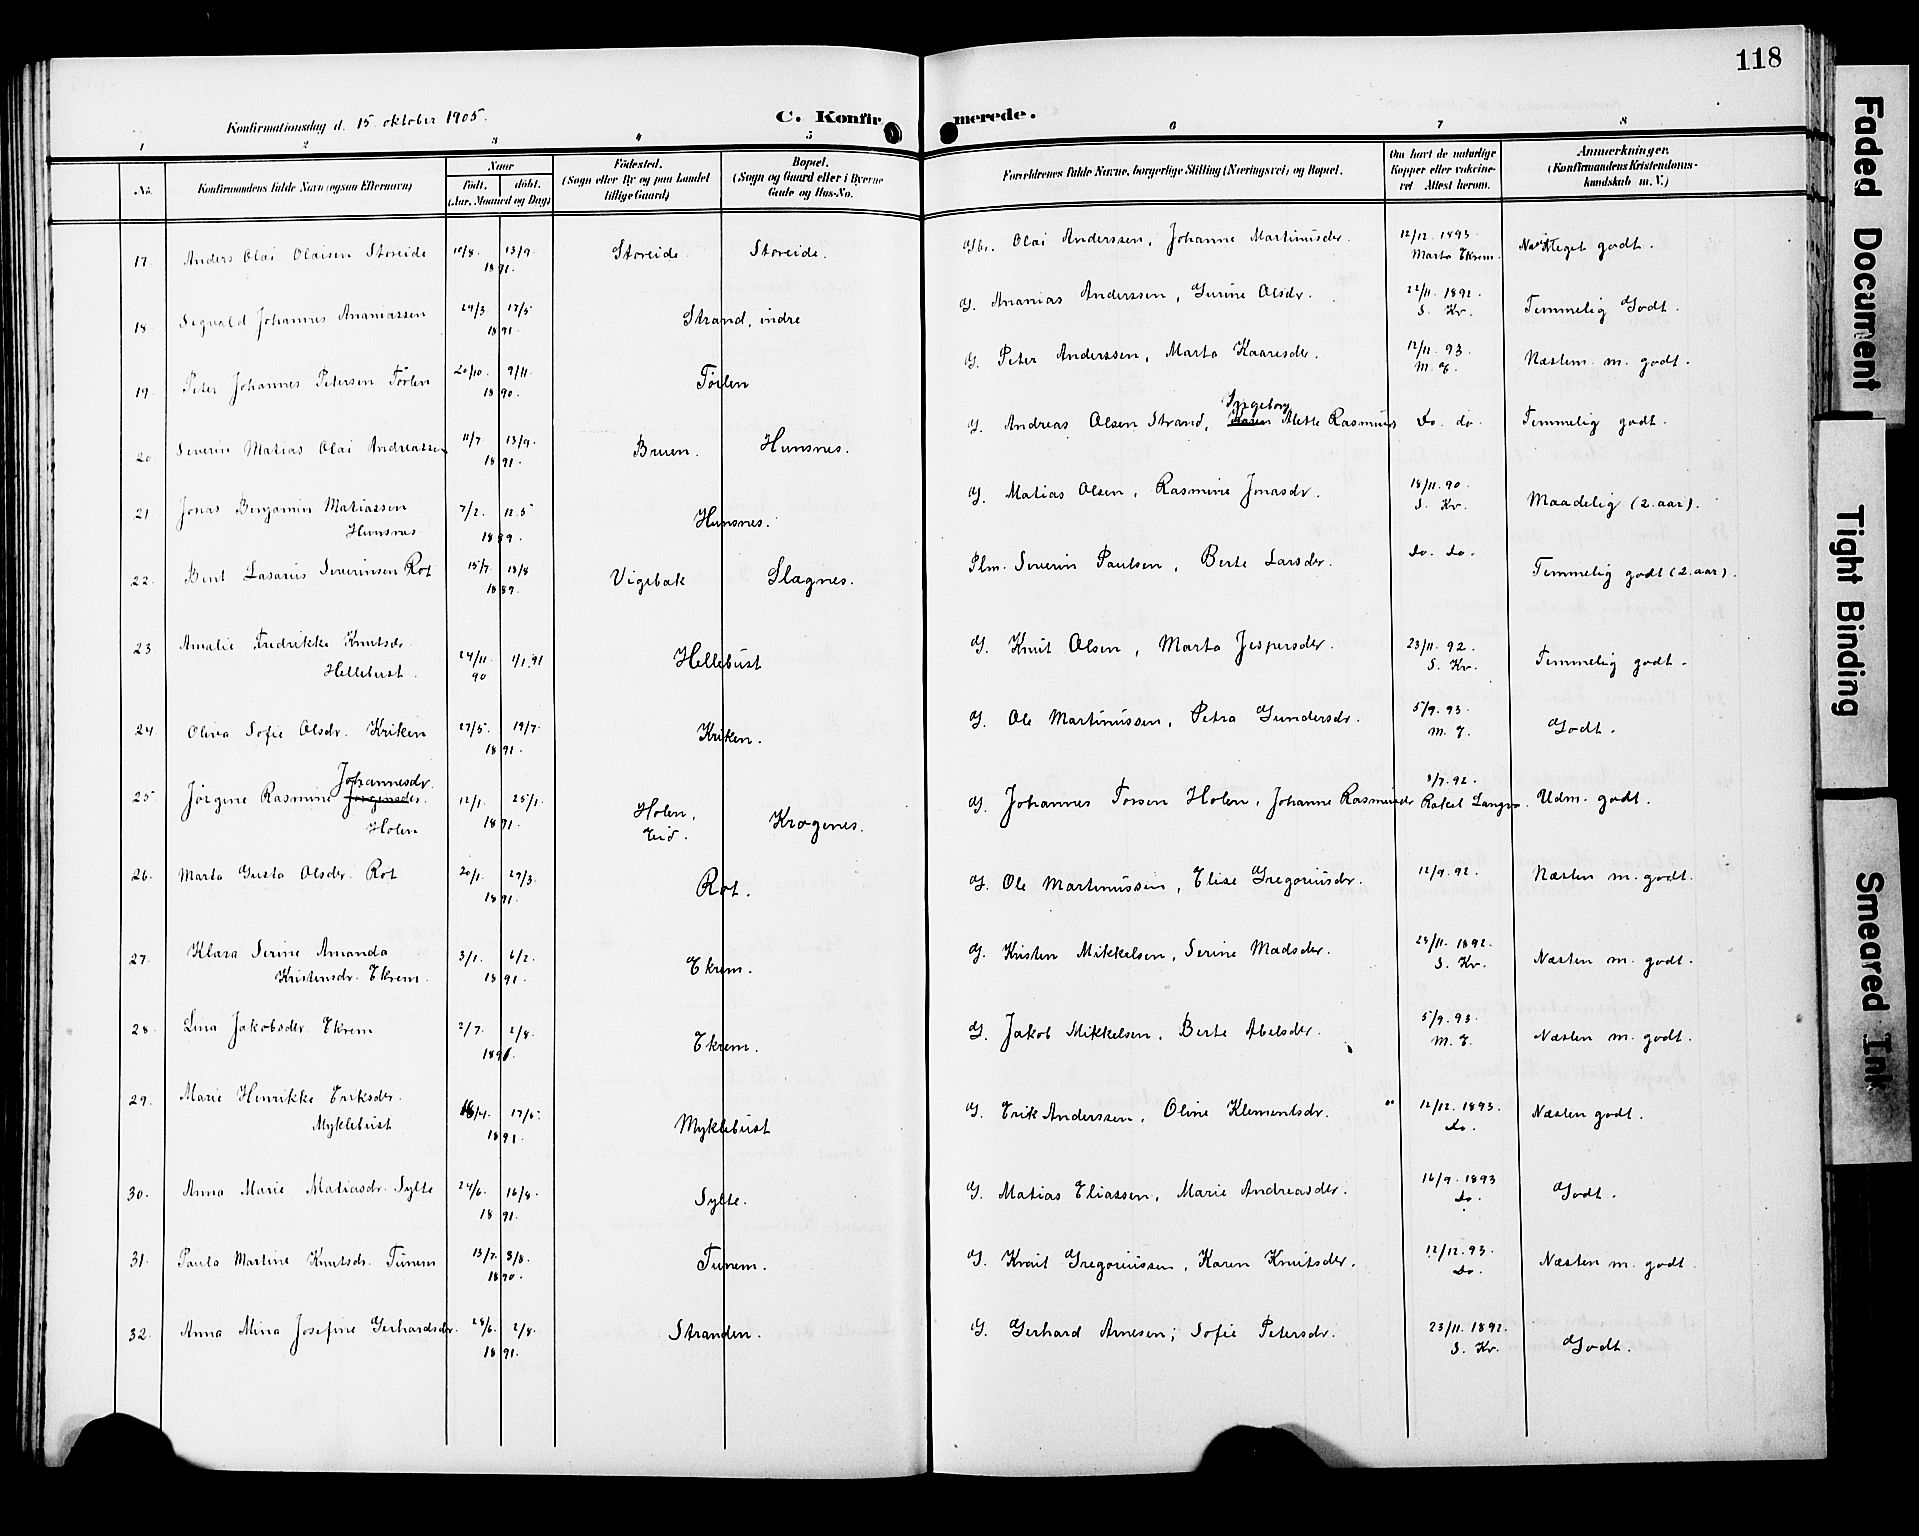 118
Konfirmationsdag d. 15. oktober 1905.
C. Konfir
merede.
1 2 3 4 5 6 7 8
No.
Konfirmandens fulde Navn (ogsaa Efternavn)
Naar
Födt. döbt.
(Aar, Maaned og Dag)
Födested.
(Sogn eller By og paa Landet
tillige Gaard)
Bopæl.
(Sogn og Gaard eller i Byerne
Gade og Hus-No.
Forældrenes fulde Navne, borgerlige Stilling (Næringsvei) og Bopæl.
Om havt de naturlige
Kopper eller vakcine-
ret Attest herom.
Anmærkninger.
(Konfirmandens Kristendoms-
kundskab m. V.)
17. Anders Olai Olaisen Storeide 10/8. 13/9. Storeide. Storeide. Gbr. Olai Anderssen, Johanne Martinusdr. 12/12. 1893. Meget godt.
1891. Marta Ekrem.
18. Sigvald Johannes Ananiassen 29/3. 17/5 Strand, indre G. Ananias Anderssen, Gurine Olsdr. 22/11. 1892. Temmelig Godt.
1891. S. Kr.
19. Peter Johannes Petersen Törlen 20/10. 9/11. Törlen G. Peter Anderssen, Marta Kaaresdr. 12/11. 93. Næsten m. godt.
1890. M. E.
Ingeborg
20. Severin Matias Olai Andreassen 11/7 13/9. Bruen. Hunsnes. G. Andreas Olsen Strand, Mette Rasmus Do. do. Temmelig godt.
1891.
21 Jonas Benjamin Matiassen 7/2. 12.5 Hunsnes. G. Matias Olsen, Rasmine Jonasdr. 18/11. 90. Maadelig (2. aar).
Hunsnes. 1889. S. Kr.
22. Bent Lasarus Severinsen Rot 15/7. 18/8 Vigebak Slagnes. Plm. Severin Paulsen, Berte Larsdr. do. do. Temmelig godt (2. aar).
1889.
23. Amalie Fredrikke Knutsdr. 24/11. 1/1. 91 Hellebust G. Knut Olsen, Marta Jespersdr. 23/11. 92. Temmelig godt.
Hellebust. 90 S. Kr.
24. Oliva Sofie Olsdr. Kriken 27/5. 19/7. Kriken. G. Ole Martinussen, Petra Gundersdr. 5/9. 93. Godt.
1891. M. E.
Johannesdr.
25. Jørgine Rasmine Jørgensdr. 12/1. 25/1. Holen, Krogenes. G. Johannes Torsen Holen, Johanne Rasmusdr 8/7. 92. Udm. godt.
Holen 1891. Eid. Rakel Langva.
26. Marta Gusta Olsdr. Rot 20/1. 29/3. Rot. G. Ole Martinussen, Elise Gregoriusdr. 12/9. 92. Næsten m. godt.
1891.
27. Klara Serine Amanda 3/1. 6/2. Ekrem. G. Kristen Mikkelsen, Serine Madsdr. 23/11. 1892. Næsten m. godt.
Kristensdr. Ekrem. 1891. S. Kr.
28. Lina Jakobsdr. Ekrem 2/7. 2/8. Ekrem. G. Jakob Mikkelsen, Berte Abelsdr. 5/9. 93. Næsten m. godt.
M. E.
29. Marie Henrikke Eriksdr. 17/5. Myklebust G. Erik Anderssen, Oline Klementsdr. 12/12. 1893. Næsten godt.
Myklebust 1891. do.
30. Anna Marie Matiasdr. Sylte 24/6. 16/8. Sylte. G. Matias Eliassen, Marie Andreasdr. 16/9. 1893 Godt.
1891. do.
31. Paula Martine Knutsdr. Tunem 13/7. 3/8. Tunem. G. Knut Gregoriussen, Karen Knutsdr. 12/12. 93. Næsten m. godt.
1890. Do.
32. Anna Mina Josefine Gerhardsdr. 28/6. 2/8. Stranden. G. Gerhard Arnesen; Sofie Petersdr. 23/11. 1892. Godt.
1891. S. Kr.
Faded Document
Tight Binding
Smeared Ink